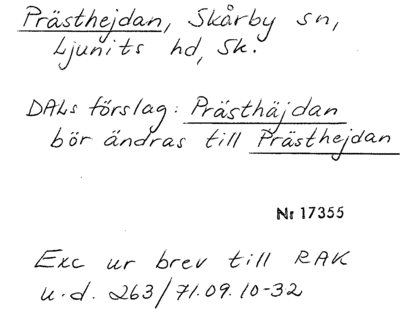 Prästhejdan, Skårby sn,
Ljunits hd, Sk.
DALs förslag: Prästhäjdan
bör ändras till Prästhejdan
Nr 17355
Exc ur brev till RAK
u.d. 263/71.09.10-32